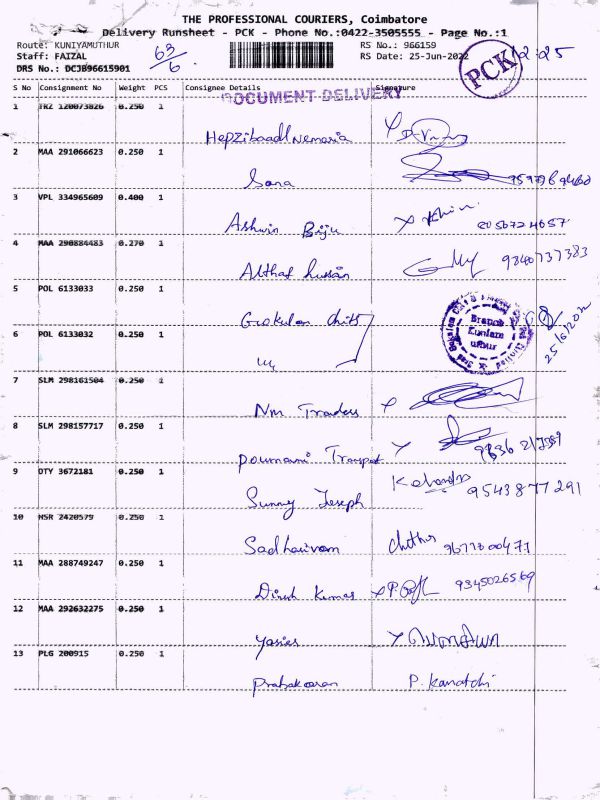 THE PROFESSIONAL COURIERS, Coimbatore
Delivery Runsheet - PCK - Phone No.:0422-3505555 - Page No.:1
Route: KUNIYAMUTHUR
Staff: FAIZAL
DRS No.: DCJB96615901
63/6
RS No.: 966159
RS Date: 25-Jun-2022
PCK
12:25
S No Consignment No Weight PCS Consignee Details Signature
DOCUMENT DELIVERY
1 TRZ 120073826 0.250 1
2 MAA 291066623 0.250 1
Sana
3 VPL 334965609 0.400 1
Ashwin Biju
8056724657
4 MAA 290884483 0.270 1
Althaf hussain
9340737383
5 POL 6133033 0.250 1
Gokulam Chits
6 POL 6133032 0.250 1
Branch
25/6/2022
7 SLM 298161504 0.250 1
Nm Traders
8 SLM 298157717 0.250 1
Pournami Transport
9 OTY 3672181 0.250 1
Sunny Joseph
9543877291
10 HSR 2420579 0.250 1
Sadhasivam
9677800477
11 MAA 288749247 0.250 1
Dinesh Kumar
9345026569
12 MAA 292632275 0.250 1
13 PLG 200915 0.250 1
Prabakaran P. Kamatchi